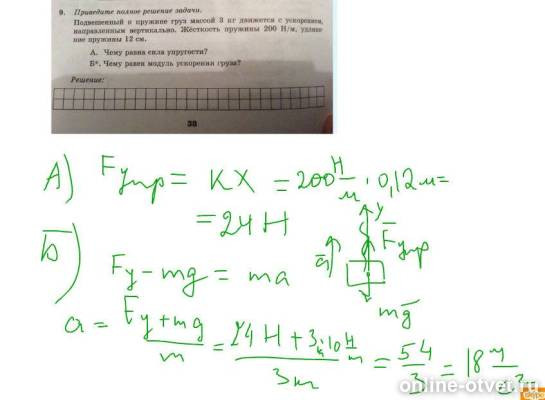 9. Приведите полное решение задачи.
Подвешенный к пружине груз массой 3 кг движется с ускорением,
направленным вертикально. Жёсткость пружины 200 Н/м, удлине-
ние пружины 12 см.
А. Чему равна сила упругости?
Б*. Чему равен модуль ускорения груза?
Решение:
38
А) Fупр = KX = 200 Н/м · 0,12 м =
= 24 Н
Б) Fу - mg = ma
y
a
Fупр
mg
a = Fу + mg / m = 24 Н + 3 · 10 / 3 = 54 / 3 = 18 м/с²
online-otvet.ru